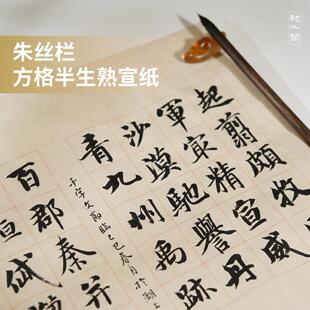 朱丝栏
方格半生熟宣纸
起翦頗牧
軍冣精宣威
沙漠馳譽丹
青九州禹跡
千字文節臨乙巳春月於湖上
百郡秦并
岱